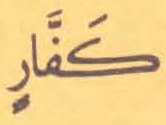 كَفَّارٍ